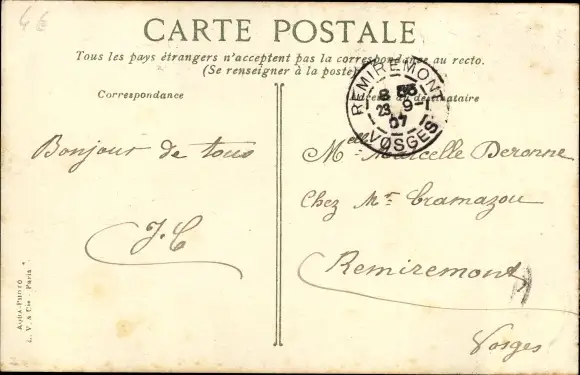 4€
CARTE POSTALE
Tous les pays étrangers n'acceptent pas la correspondance au recto.
(Se renseigner à la poste)
Correspondance
Bonjour de tous
J. C
AQUA-PHOTO
L. V. & Cie - Paris
REMIREMONT
8 35
23 - 9
07
VOSGES
destinataire
Melle Marcelle Deronne
Chez Mr. Cramazou
Remiremont
Vosges